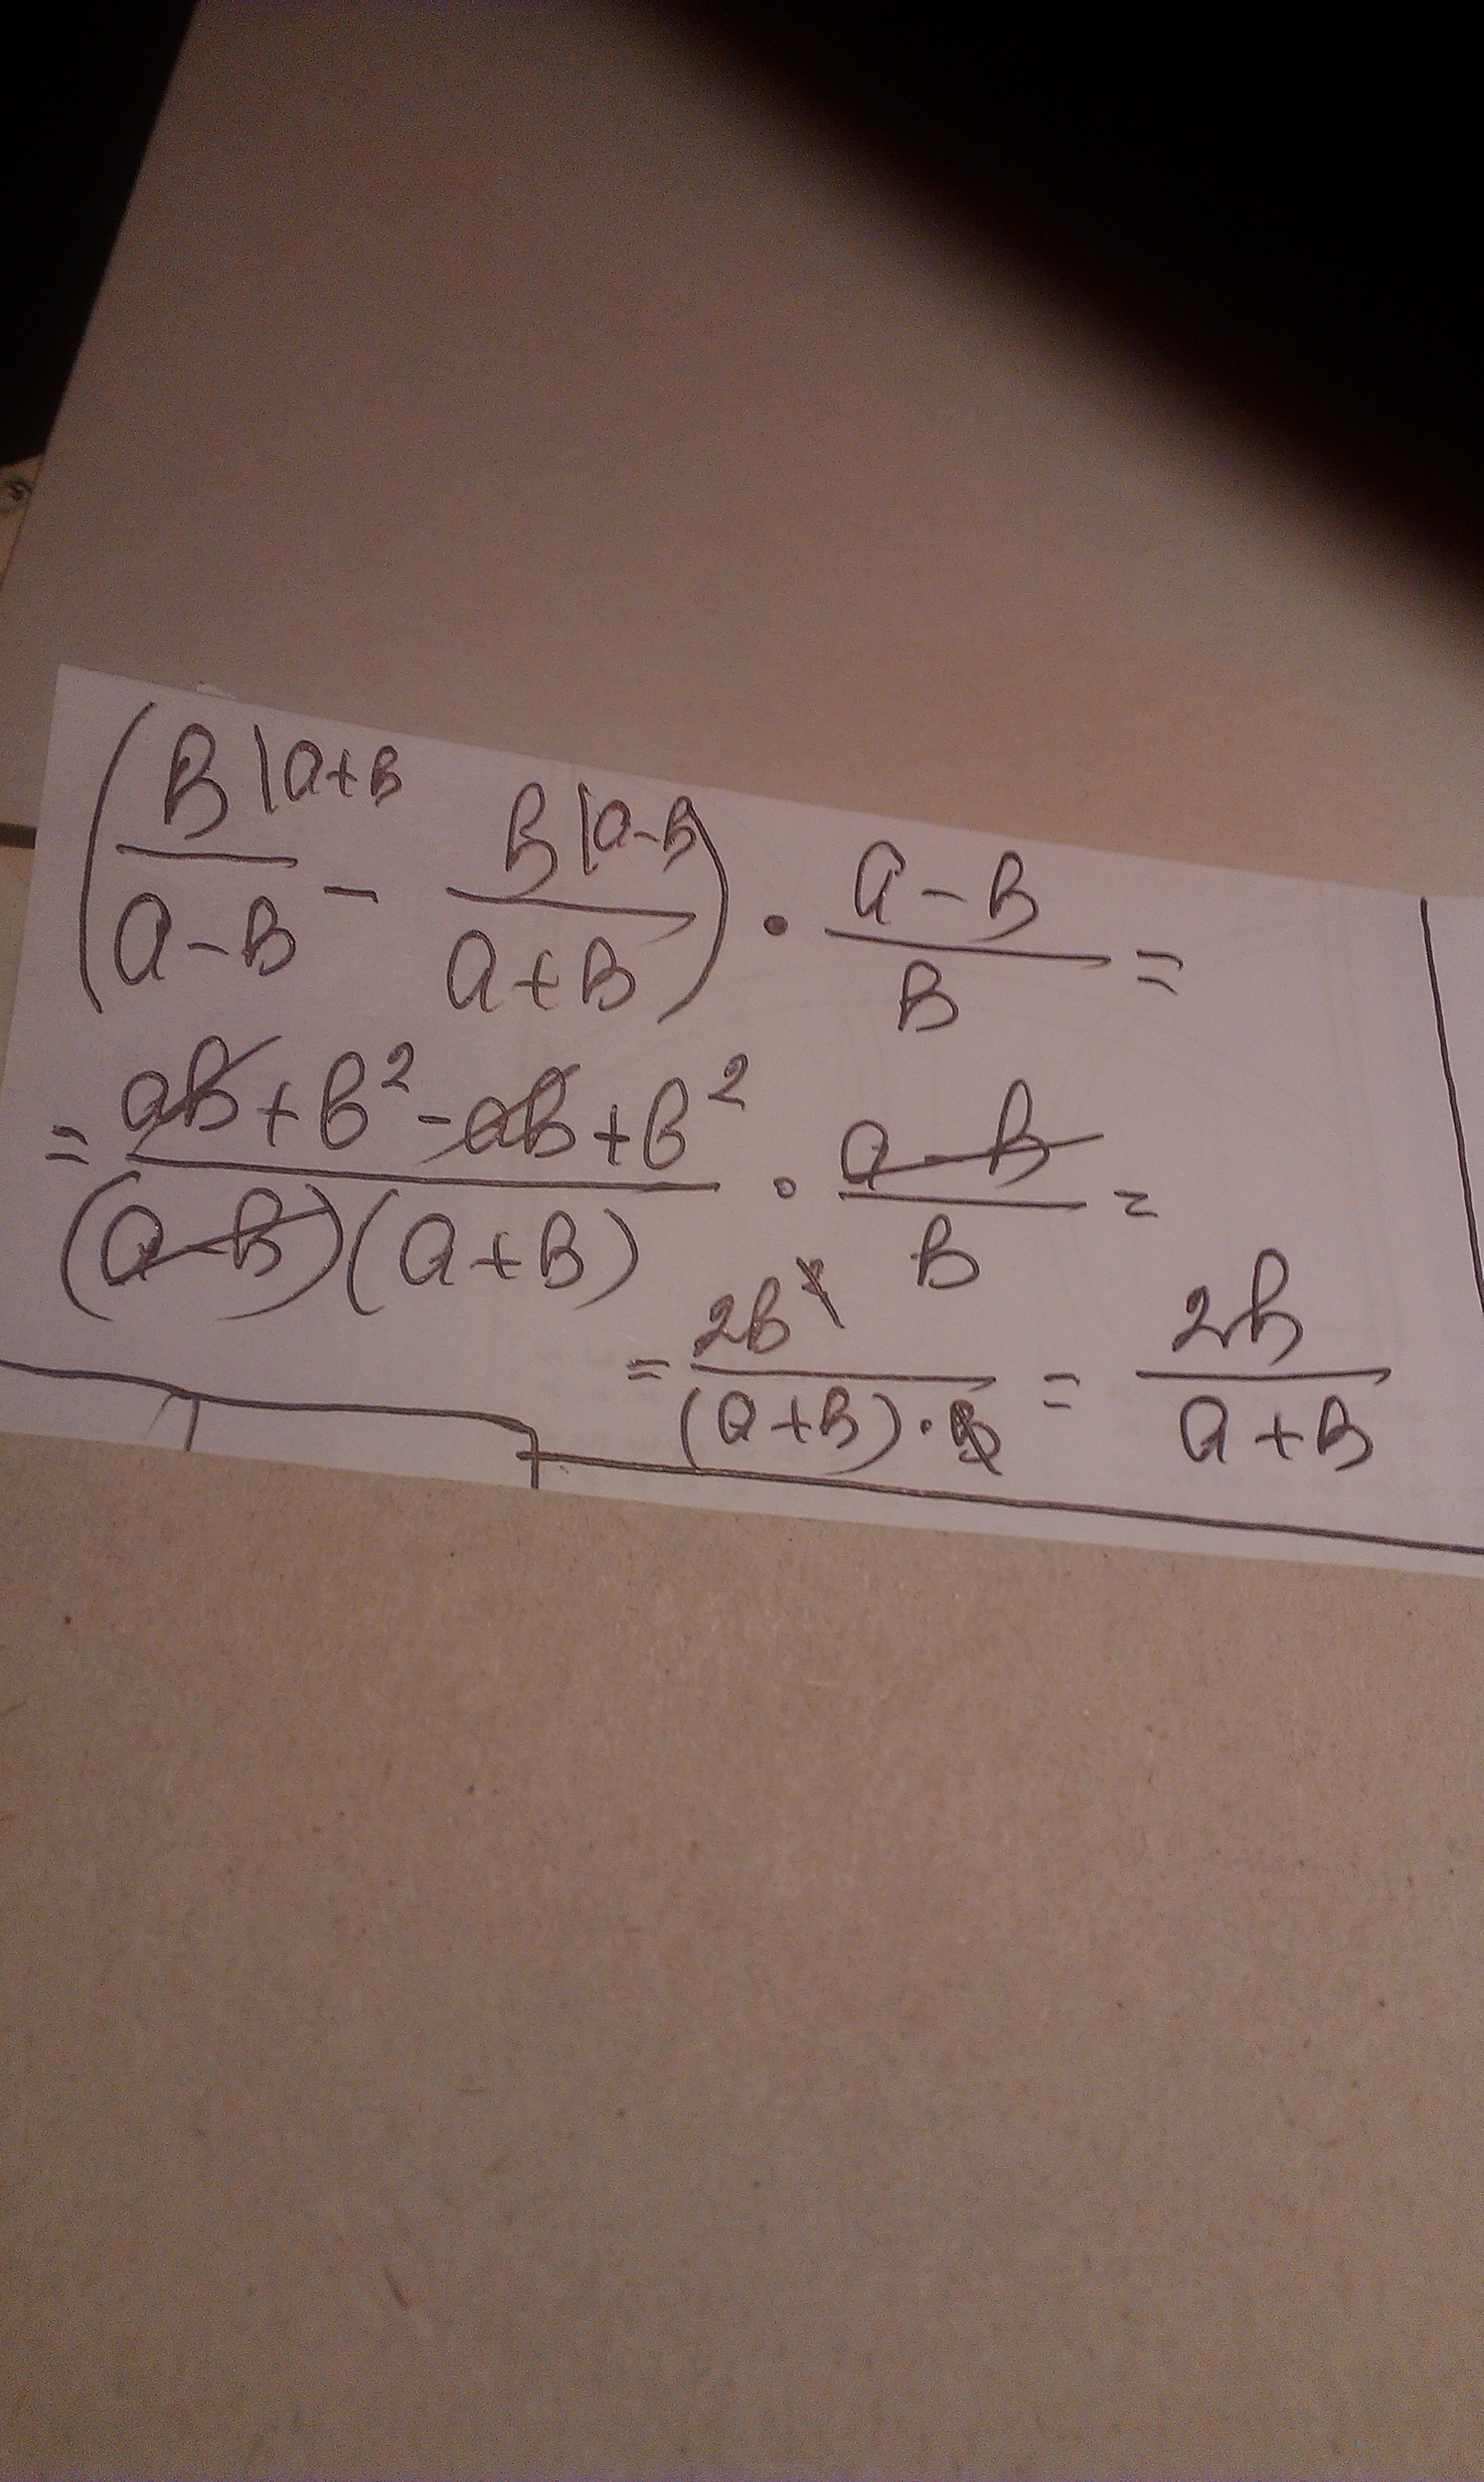 (B|a+B / a-B - B|a-B / a+B) · a-B / B =
= ab+b²-ab+b² / (a-B)(a+B) · a-B / B =
= 2b² / (a+B)·B = 2b / a+B